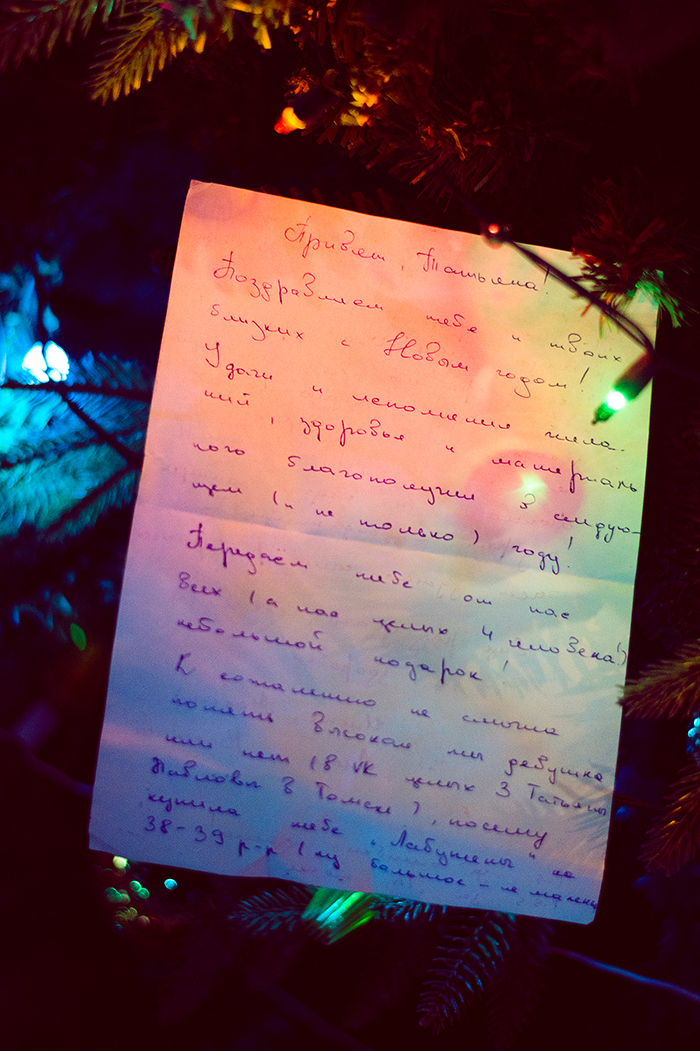 Привет, Татьяна!
Поздравляем тебя и твоих
близких с Новым годом!
Удачи и исполнения жела-
ний, здоровья и материаль
ного благополучия в следую-
щем (и не только) году!
Передаём тебе от нас
всех (а нас целых 4 человека!)
небольшой подарок!
К сожалению не смогла
понять высокая ты девушка
или нет (в VK целых 3 Татьяны
Павловы в Томске), посему
купила тебе "Лабутены" на
38-39 р-р (ну большое - не маленькое